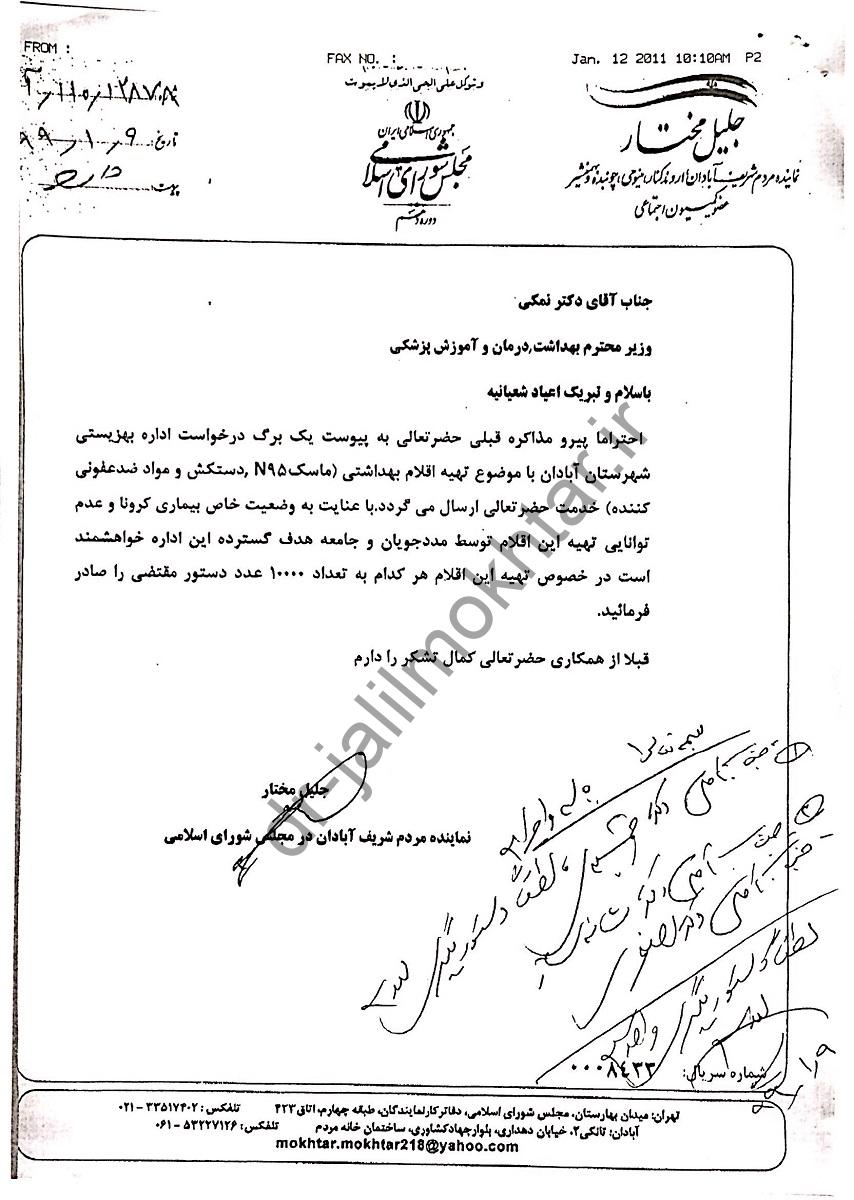 FROM :
FAX NO. :
Jan. 12 2011 10:10AM P2
وتوکل علی الحی الذی لایموت
جمهوری اسلامی ایران
مجلس شورای اسلامی
دوره دهم
جلیل مختار
نماینده مردم شریف آبادان، اروندکنار، مینوحی، چوئبده و بهمنشیر
عضو کمیسیون اجتماعی
تاریخ: ۹۹/۱/۹
پیوست: دارد
جناب آقای دکتر نمکی
وزیر محترم بهداشت,درمان و آموزش پزشکی
باسلام و تبریک اعیاد شعبانیه
احتراما پیرو مذاکره قبلی حضرتعالی به پیوست یک برگ درخواست اداره بهزیستی
شهرستان آبادان با موضوع تهیه اقلام بهداشتی (ماسکN۹۵ ,دستکش و مواد ضدعفونی
کننده) خدمت حضرتعالی ارسال می گردد.با عنایت به وضعیت خاص بیماری کرونا و عدم
توانایی تهیه این اقلام توسط مددجویان و جامعه هدف گسترده این اداره خواهشمند
است در خصوص تهیه این اقلام هر کدام به تعداد ۱۰۰۰۰ عدد دستور مقتضی را صادر
فرمائید.
قبلا از همکاری حضرتعالی کمال تشکر را دارم
جلیل مختار
نماینده مردم شریف آبادان در مجلس شورای اسلامی
dr-jalilmokhtar.ir
بسمه تعالی
جناب آقای دکتر
لطفاً دستور پیگیری
جناب آقای دکتر
جناب آقای دکتر
لطفاً دستور پیگیری
۹۹/۱/۹
شماره سریال: ۰۰۰۸۴۳۳
تهران: میدان بهارستان، مجلس شورای اسلامی، دفاتر کار نمایندگان، طبقه چهارم، اتاق ۴۲۳ تلفکس: ۳۳۵۱۷۴۰۲ - ۰۲۱
آبادان: تانکی۲، خیابان دهداری، بلوار جهادکشاورزی، ساختمان خانه مردم تلفکس: ۵۳۲۲۷۱۲۶ - ۰۶۱
mokhtar.mokhtar218@yahoo.com